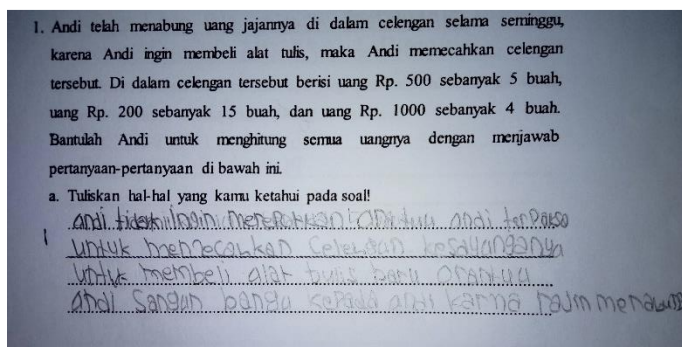 1. Andi telah menabung uang jajannya di dalam celengan selama seminggu,
karena Andi ingin membeli alat tulis, maka Andi memecahkan celengan
tersebut. Di dalam celengan tersebut berisi uang Rp. 500 sebanyak 5 buah,
uang Rp. 200 sebanyak 15 buah, dan uang Rp. 1000 sebanyak 4 buah.
Bantulah Andi untuk menghitung semua uangnya dengan menjawab
pertanyaan-pertanyaan di bawah ini.
a. Tuliskan hal-hal yang kamu ketahui pada soal!
andi tidak ingin andi terpaksa
untuk memecahkan celengan kesayanganya
untuk membeli alat tulis baru orantua
andi sangan banga kepada andi karna rajin menabung